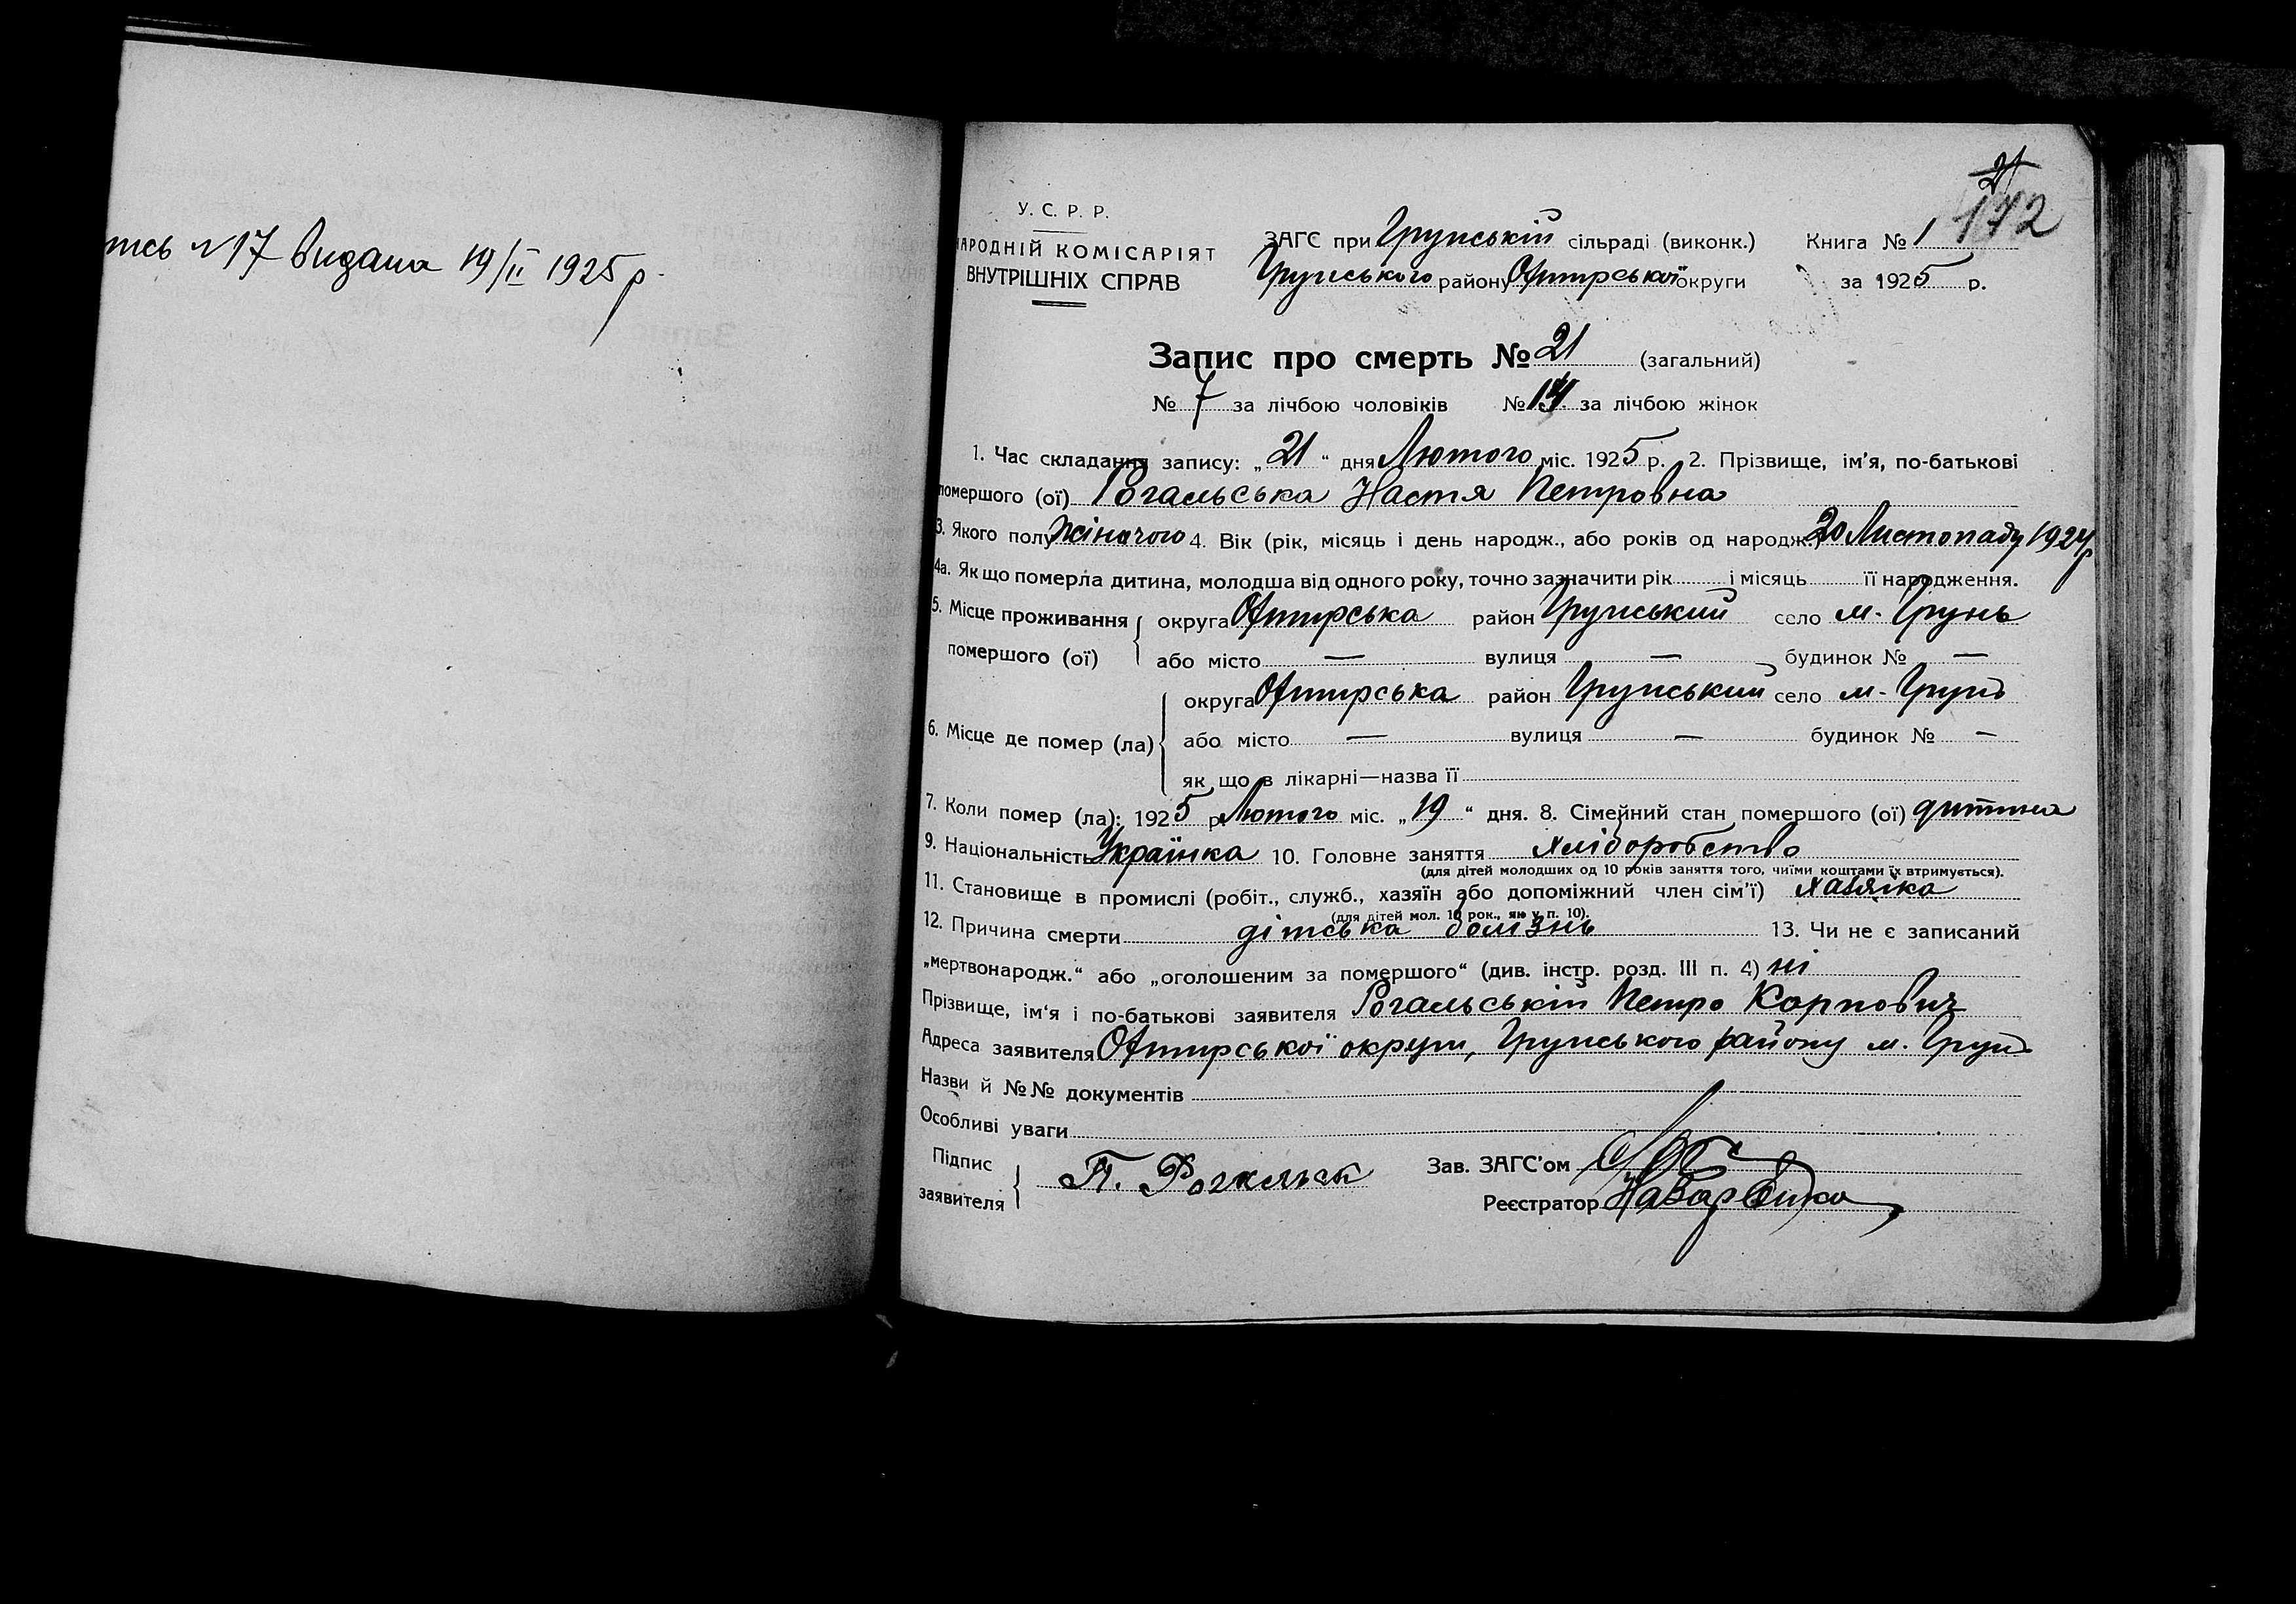 тсь № 17 видана 19/II 1925 р.
21
172
У. С. Р. Р.
НАРОДНІЙ КОМІСАРІЯТ
ВНУТРІШНІХ СПРАВ
ЗАГС при Грунській сільраді (виконк.) Книга № 1
Грунського району Охтирської округи за 1925 р.
Запис про смерть № 21 (загальний)
№ 7 за лічбою чоловіків № 14 за лічбою жінок
1. Час складання запису: „21“ дня Лютого міс. 1925 р. 2. Прізвище, ім'я, по-батькові
помершого (ої) Рогальська Настя Петровна
3. Якого полу жіночого 4. Вік (рік, місяць і день народж., або років од народж.) 20 Листопаду 1924 р
4а. Як що померла дитина, молодша від одного року, точно зазначити рік і місяць її народження.
5. Місце проживання округа Охтирська район Грунський село м. Грунь
помершого (ої) або місто — вулиця — будинок № —
округа Охтирська район Грунський село м. Грунь
6. Місце де помер (ла) або місто — вулиця — будинок № —
як що в лікарні—назва її
7. Коли помер (ла): 1925 р. Лютого міс. „19“ дня. 8. Сімейний стан помершого (ої) дитина
9. Національність Українка 10. Головне заняття хліборобство
(для дітей молодших од 10 років заняття того, чиїми коштами їх втримується).
11. Становище в промислі (робіт., служб., хазяїн або допоміжний член сім'ї) хазяїка
(для дітей мол. 10 рок., як у п. 10).
12. Причина смерти дітська болізнь 13. Чи не є записаний
„мертвонародж.“ або „оголошеним за помершого“ (див. інстр. розд. III п. 4) ні
Прізвище, ім'я і по-батькові заявителя Рогальській Петро Карпович
Адреса заявителя Охтирської округи, Грунського району м. Грунь
Назви й №№ документів
Особливі уваги
Підпис
заявителя П. Рогальск Зав. ЗАГС'ом
Реєстратор